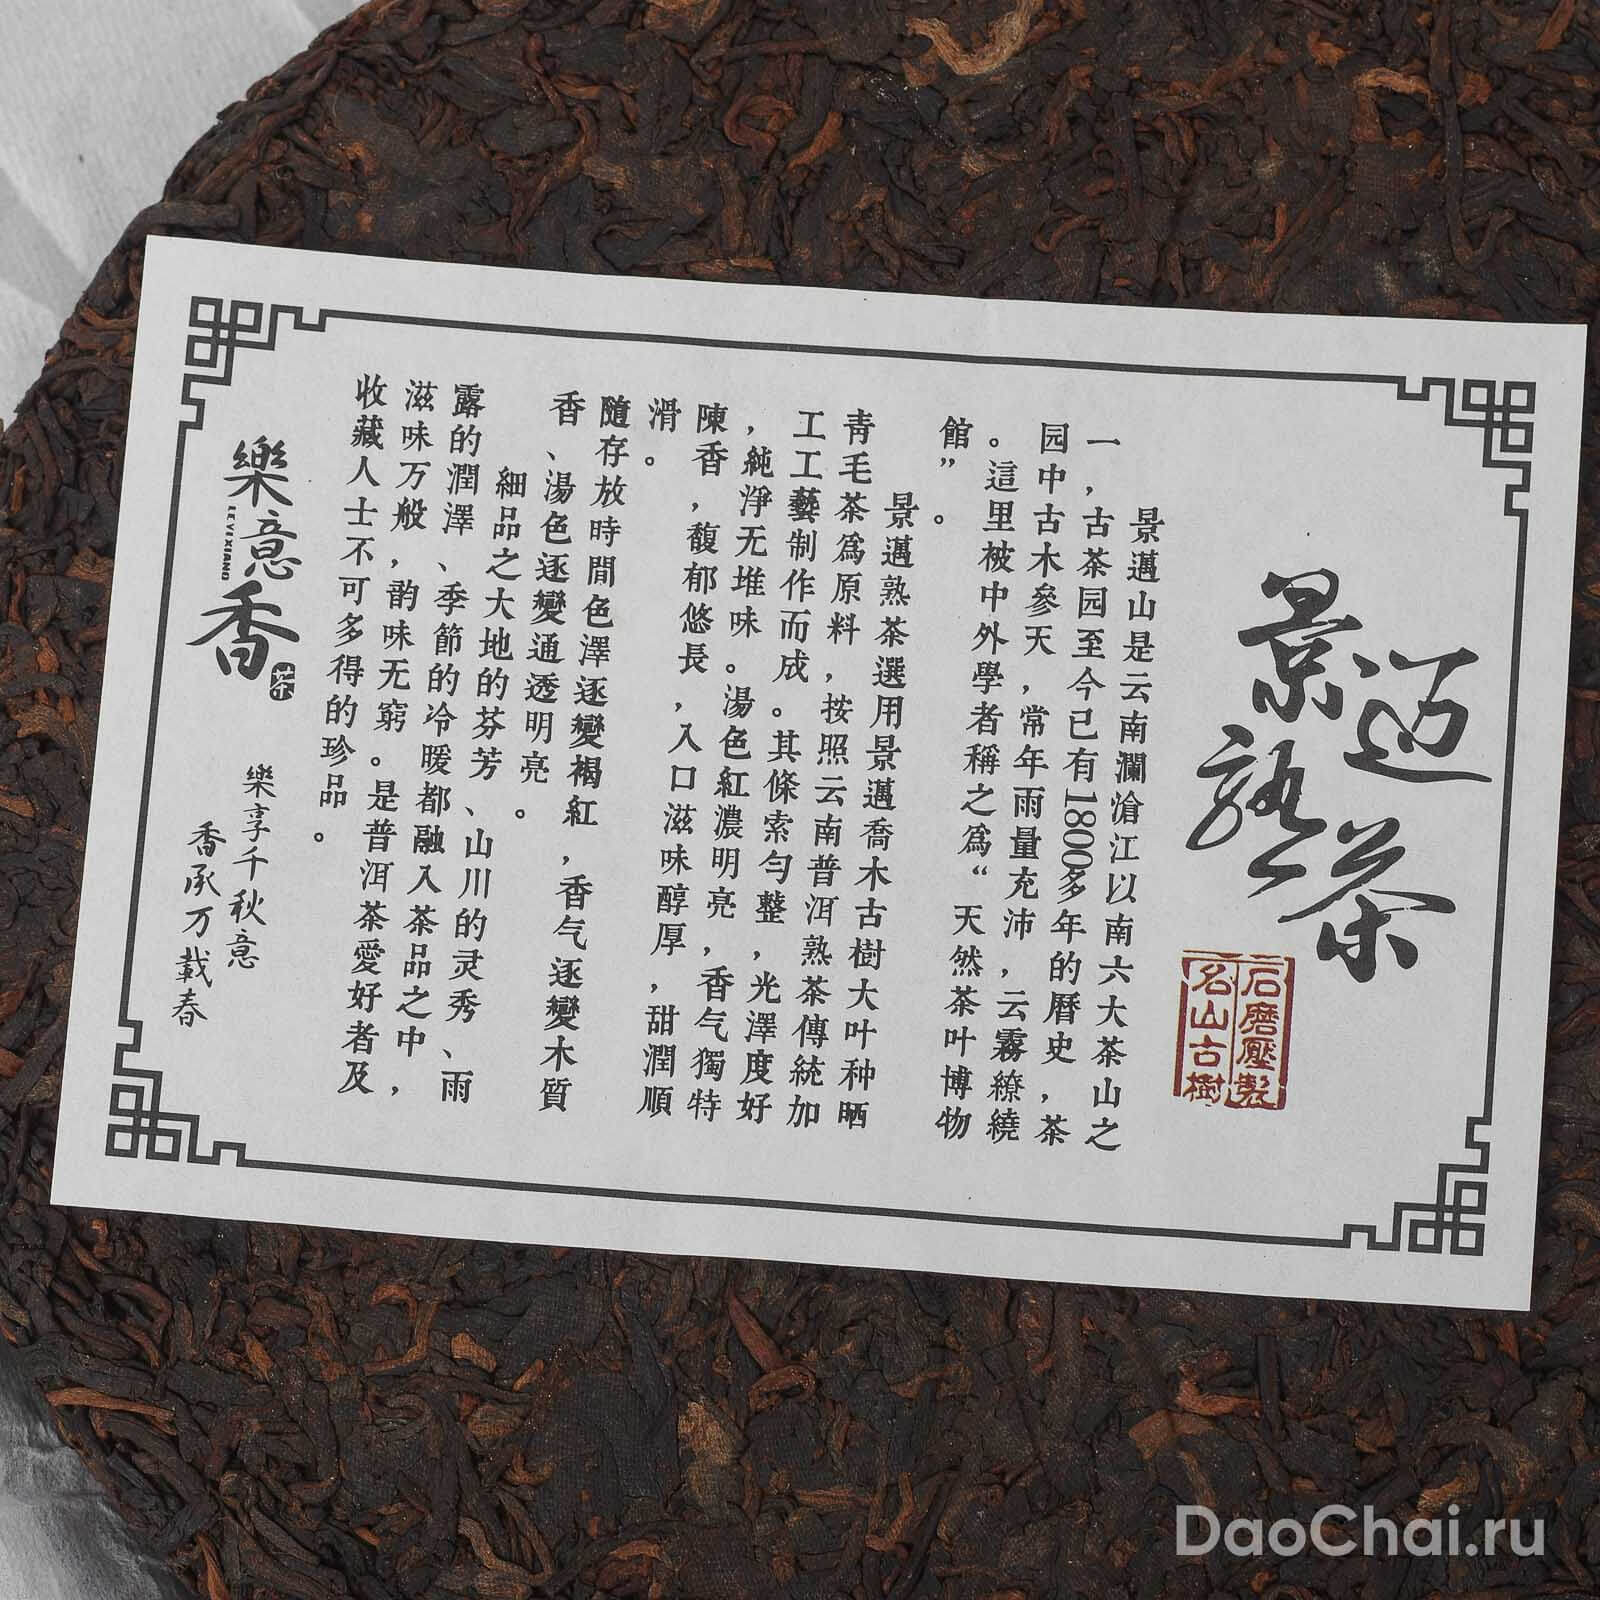 景邁
熟茶
石磨壓製
名山古樹
景邁山是云南瀾滄江以南六大茶山之
一,古茶园至今已有1800多年的曆史,茶
园中古木參天,常年雨量充沛,云霧繚繞
。這里被中外學者稱之爲“天然茶叶博物
館”。
景邁熟茶選用景邁喬木古樹大叶种晒
青毛茶爲原料,按照云南普洱熟茶傳統加
工工藝制作而成。其條索匀整,光澤度好
,純淨无堆味。湯色紅濃明亮,香气獨特
陳香,馥郁悠長,入口滋味醇厚,甜潤順
滑。
隨存放時間色澤逐變褐紅,香气逐變木質
香、湯色逐變通透明亮。
細品之大地的芬芳、山川的灵秀、雨
露的潤澤、季節的冷暖都融入茶品之中,
滋味万般,韵味无窮。是普洱茶愛好者及
收藏人士不可多得的珍品。
樂意香
LE YI XIANG
茶
樂享千秋意
香承万載春
DaoChai.ru